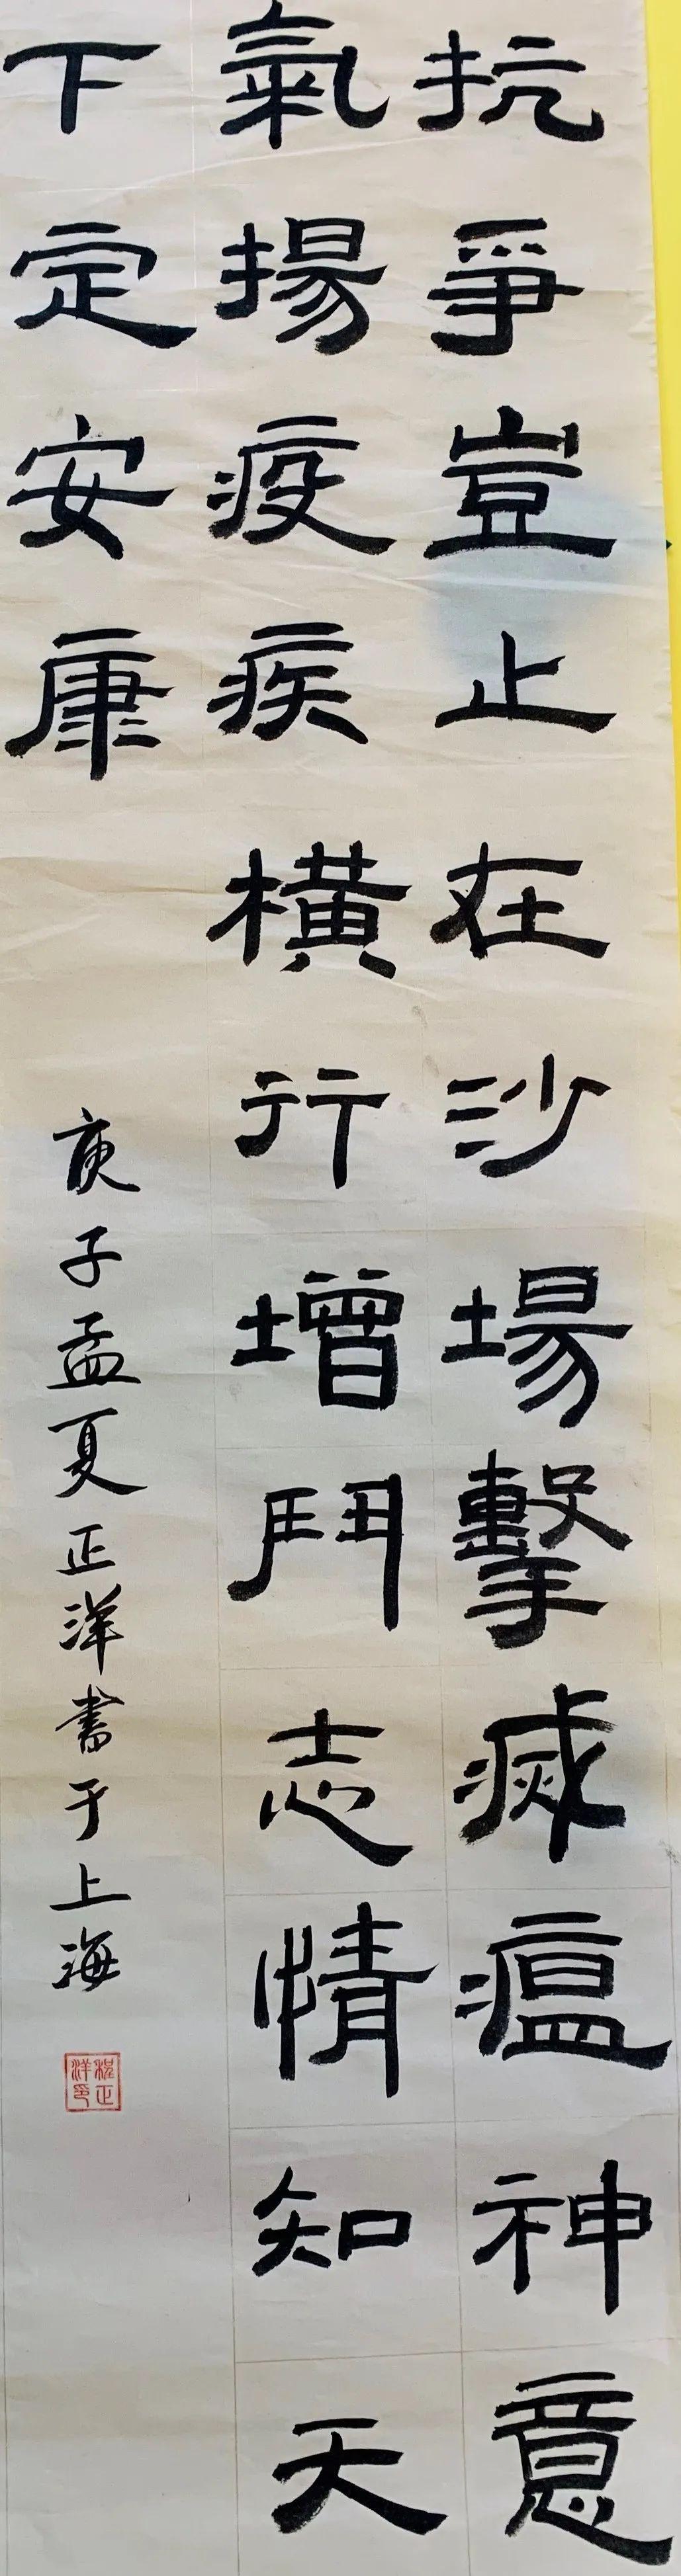 抗爭豈止在沙場擊滅瘟神意
氣揚疫疾橫行增鬥志情知天
下定安康
庚子孟夏正洋書于上海
正洋印